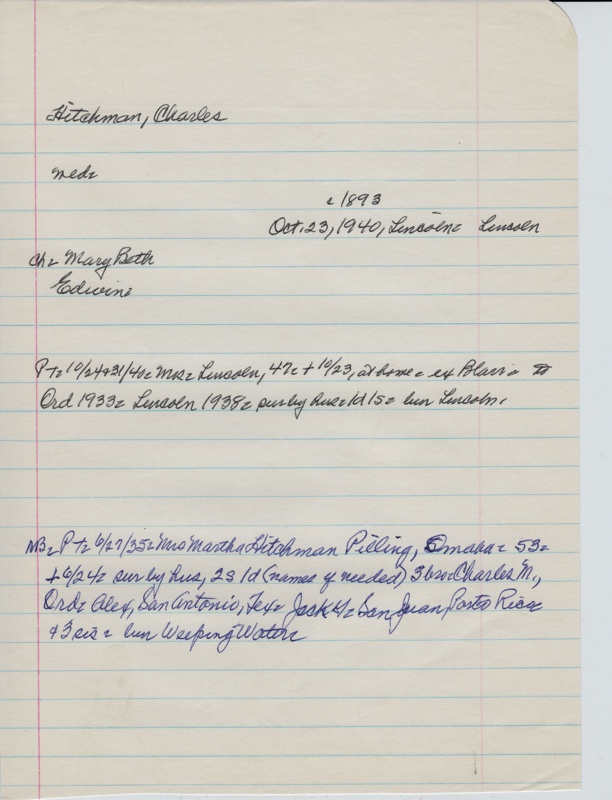 Hitchman, Charles
med=
c 1893
Oct. 23, 1940, Lincoln= Lincoln
Ch= Mary Beth
Edwin=
P+= 10/24+31/40= Mrs= Lincoln, 47= + 10/23, at home= ex Blair= to
Ord 1933= Lincoln 1938= sur by hus= 1d 1s= bur Lincoln.
NB= P+= 6/27/35= Mrs Martha Hitchman Pilling, Omaha= 53=
+ 6/24= sur by hus, 2s 1d (names if needed) 3 bro= Charles M.,
Ord= Alex, San Antonio, Tex= Jack, San Juan, Porto Rico=
+ 3 sis= bur Weeping Water=